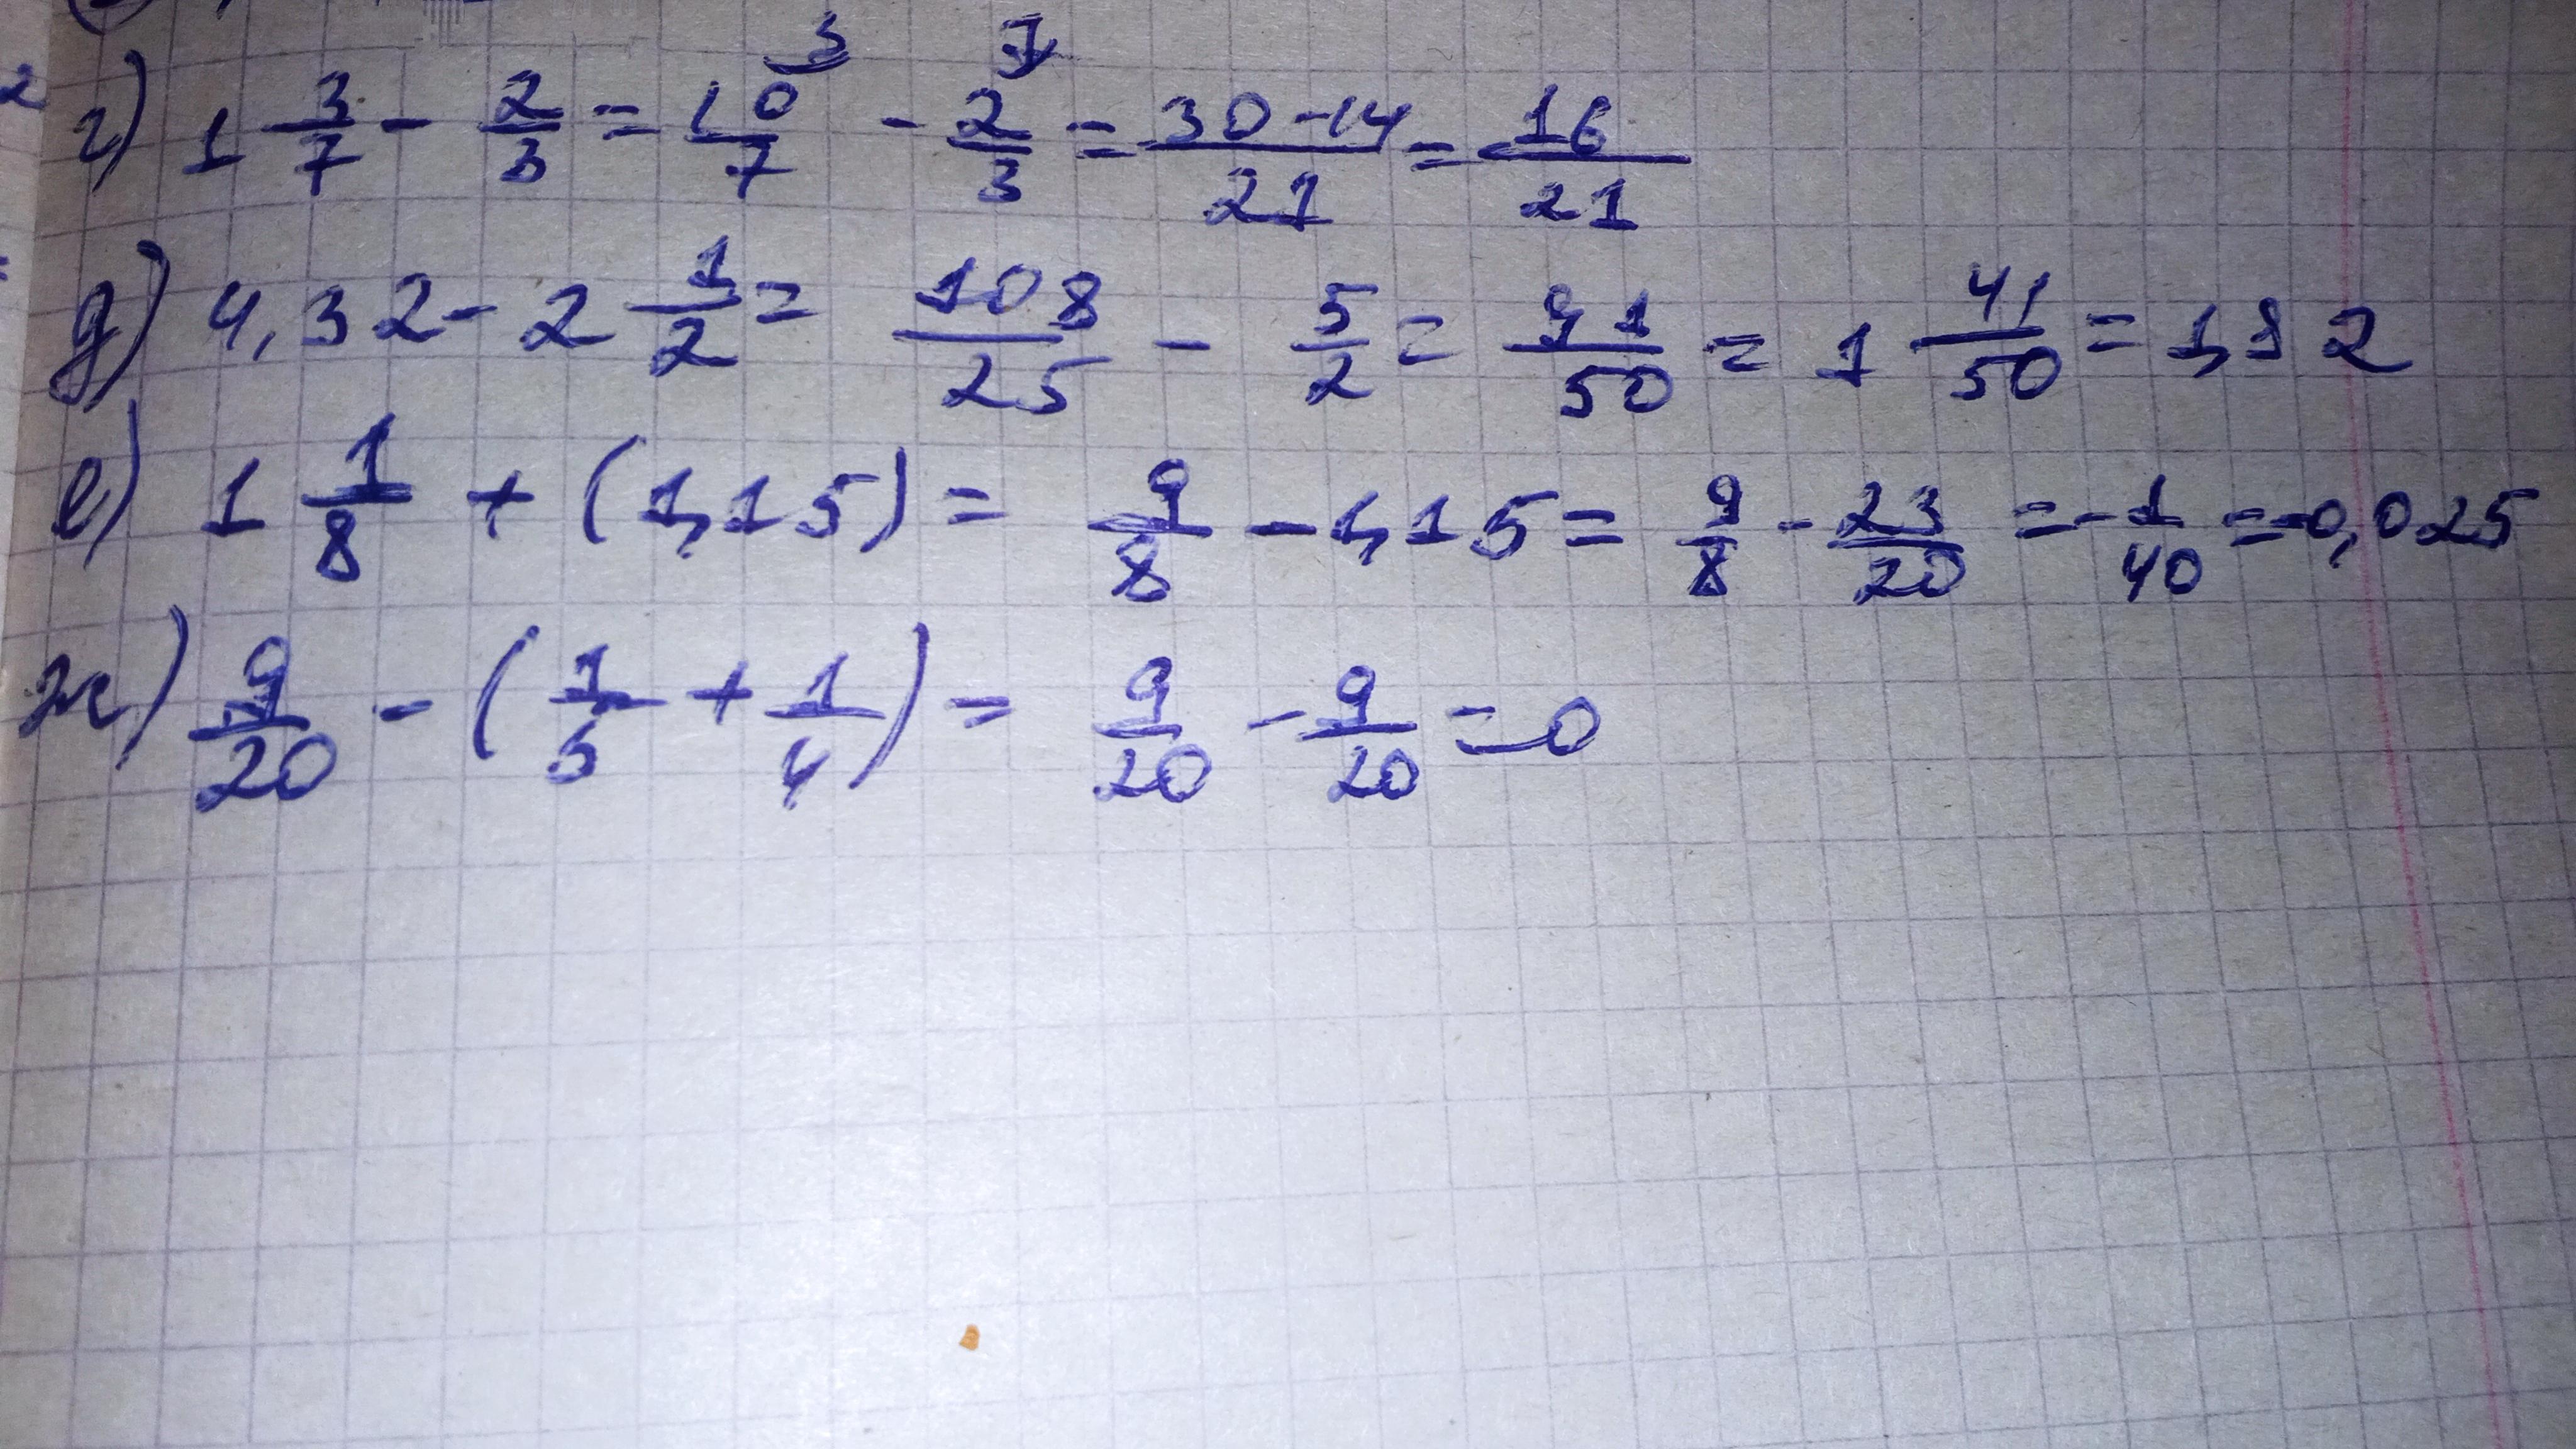 г) 1 3/7 - 2/3 = 10/7 ³ - 2/3 ⁷ = 30-14/21 = 16/21
д) 4,32 - 2 1/2 = 108/25 - 5/2 = 91/50 = 1 41/50 = 1,82
е) 1 1/8 + (1,15) = 9/8 - 1,15 = 9/8 - 23/20 = - 1/40 = -0,025
ж) 9/20 - (1/5 + 1/4) = 9/20 - 9/20 = 0